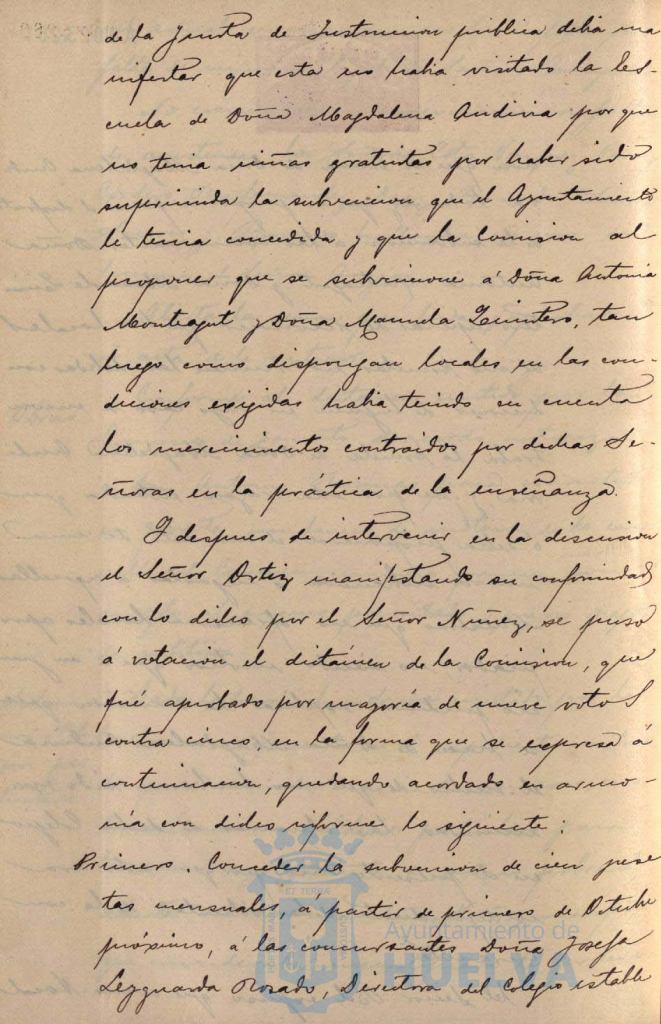 de la Junta de Instruccion pública debia ma
nifestar que esta no habia visitado la Es-
cuela de Doña Magdalena Andivia por que
no tenia niñas gratuitas por haber sido
suprimida la subvencion que el Ayuntamiento
le tenia concedida y que la Comision al
proponer que se subvencione á Doña Antonia
Montagut y Doña Manuela Quintero, tan
luego como dispongan locales en las con-
diciones exigidas habia tenido en cuenta
los merecimientos contraidos por dichas Se-
ñoras en la práctica de la enseñanza.
Y despues de intervenir en la discusion
el Señor Ortiz manifestando su conformidad
con lo dicho por el Señor Nuñez, se puso
á votacion el dictámen de la Comision, que
fué aprobado por mayoría de nueve votos
contra cinco, en la forma que se expresa á
continuacion, quedando acordado en armo-
nía con dicho informe lo siguiente:
Primero. Conceder la subvencion de cien pese
tas mensuales, á partir de primero de Octubre
próximo, á las concursantes Doña Josefa
Rosado, Directora del Colegio estable
Ayuntamiento de
HUELVA